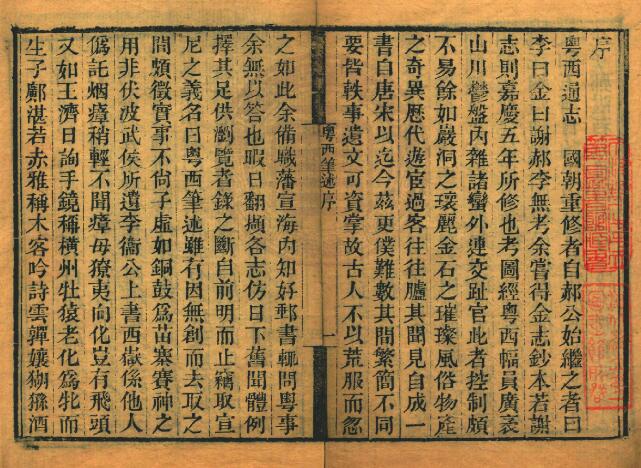 序
粤西通志　國朝重修者自郝公始繼之者曰
李曰金曰謝郝李無考余嘗得金志鈔本若謝
志則嘉慶五年所修也考圖經粤西幅員廣袤
山川鬱盤内雜諸蠻外連交趾官此者控制頗
不易餘如巖洞之瓌麗金石之璀璨風俗物產
之奇異歷代遊宦過客往往臚其聞見自成一
書自唐宋以迄今茲更僕難數其間繁簡不同
要皆軼事遺文可資掌故古人不以荒服而忽
粤西筆述序
一
之如此余備職藩宣海内知好郵書輒問粤事
余無以答也暇日翻擷各志仿日下舊聞體例
擇其足供瀏覽者錄之斷自前明而止竊取宣
尼之義名曰粤西筆述雖有因無創而去取之
間頗徵實事不尚子虛如銅鼓爲苗寨賽神之
用非伏波武侯所遺李衞公上書西嶽係他人
僞託烟瘴稍輕不聞瘴母獠夷向化豈有飛頭
又如王濟日詢手鏡稱橫州牡猿老化爲牝而
生子鄺湛若赤雅稱木客吟詩雲嚲孃猢猻酒